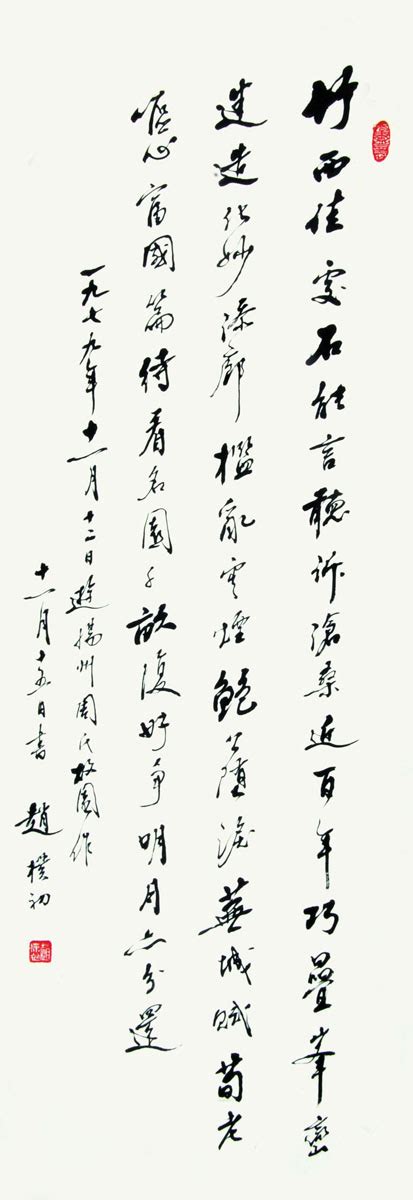 竹西佳處石能言聽訴滄桑近百年巧疊峯巒
迷造化妙添廊檻亂雲煙鮑公墮淚蕪城賦荀老
嘔心富國篇待看名園千畝復好爭明月二分還
一九七九年十一月十二日遊揚州周氏故園作
十一月十五日書 趙樸初